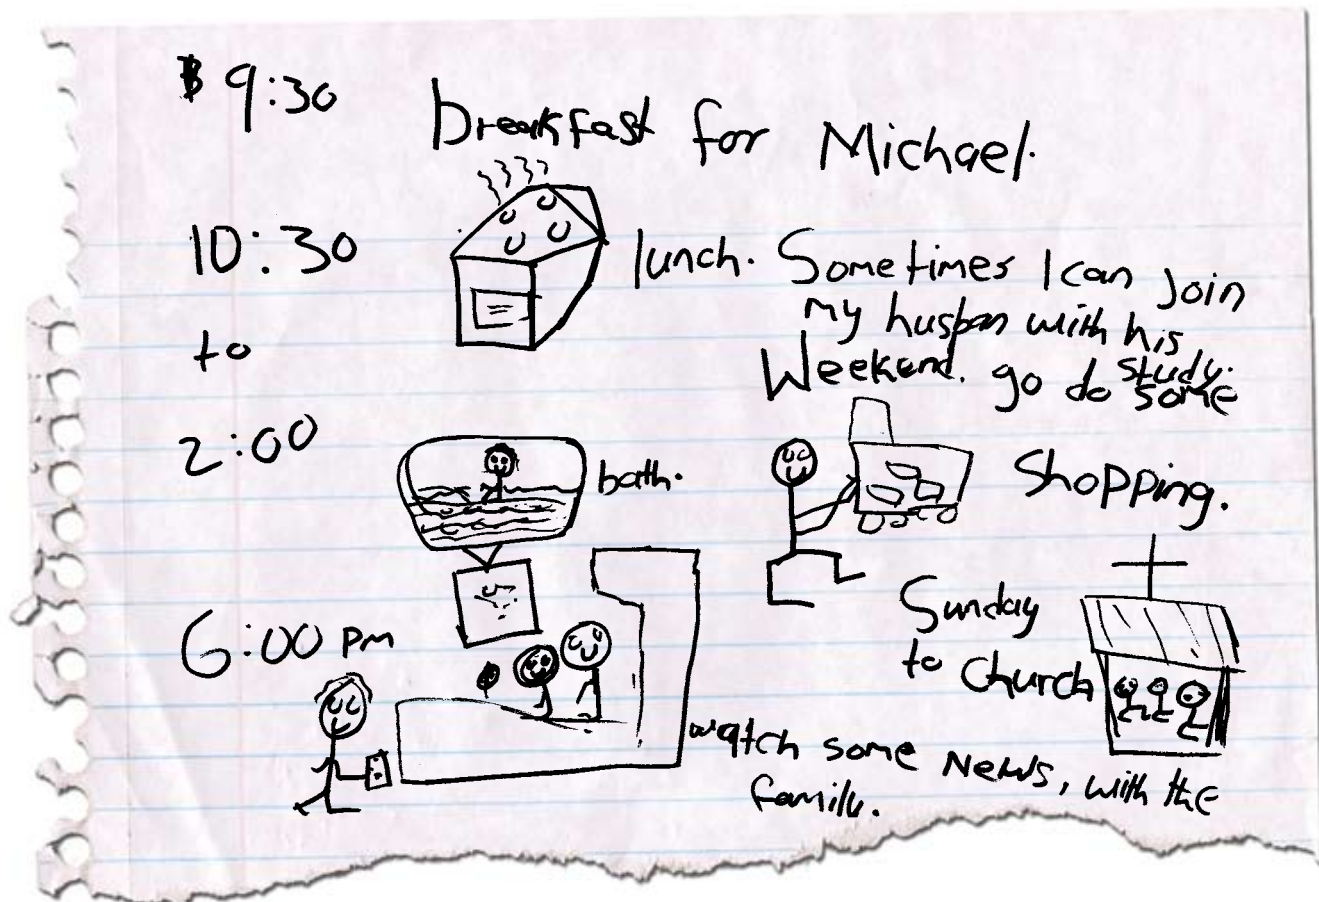 9:30
breakfast for Michael.
10:30
to
2:00
lunch. Sometimes I can join
my husban with his
Weekend. study.
go do some
Shopping.
bath.
6:00 PM
Sunday
to church
watch some News, with the
family.